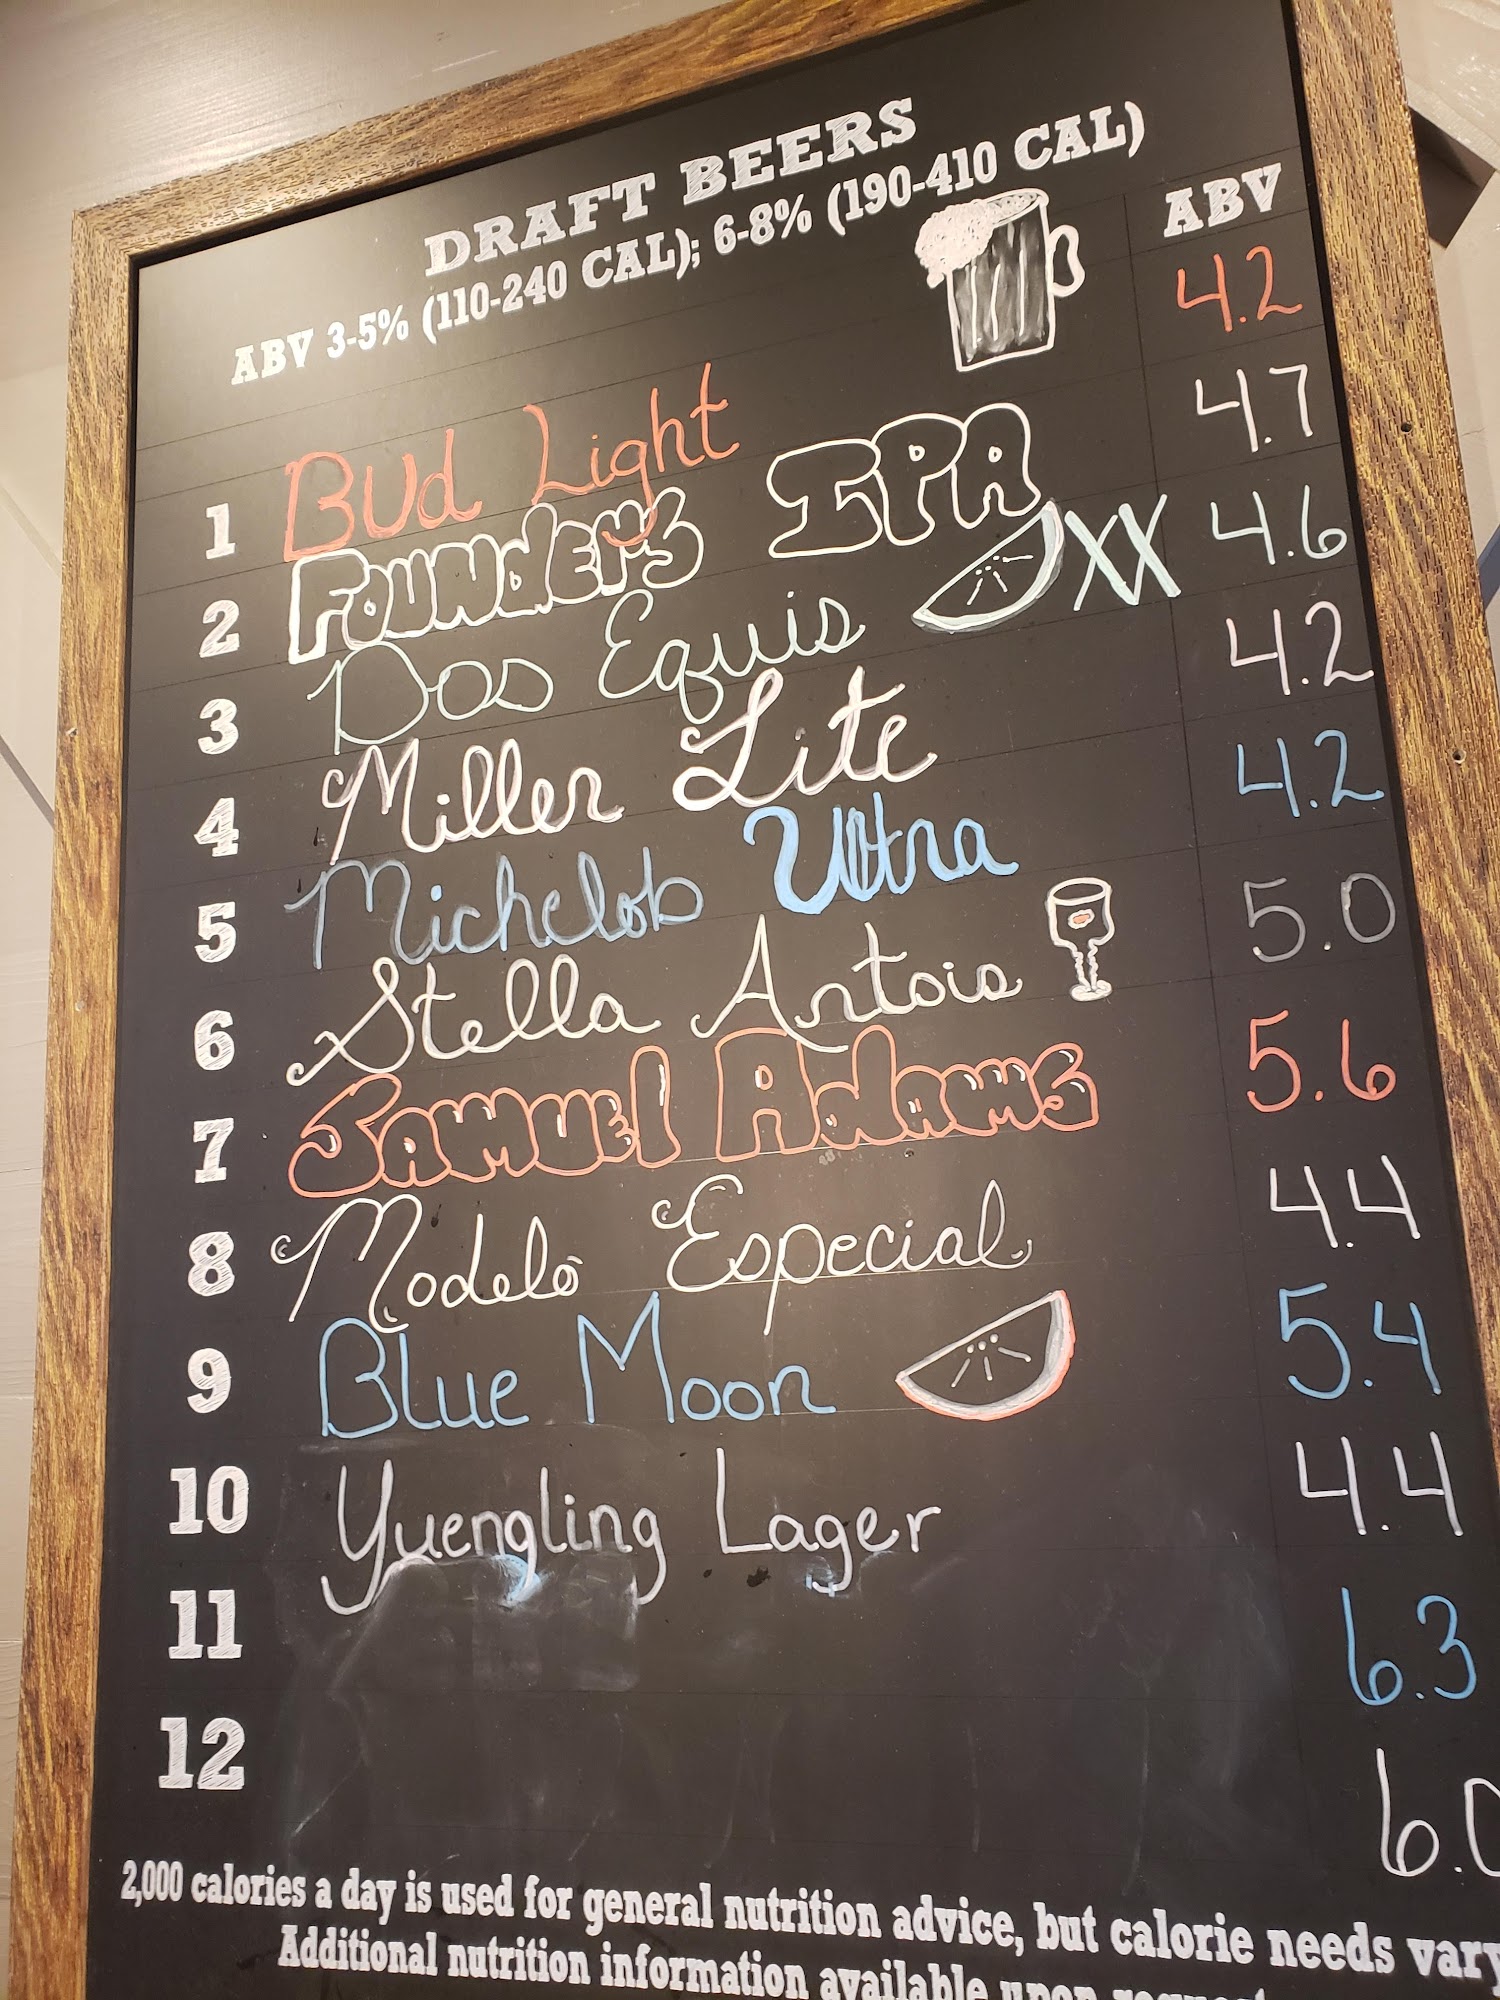 DRAFT BEERS
ABV 3-5% (110-240 CAL); 6-8% (190-410 CAL)
ABV
1 Bud Light 4.2
2 Founders IPA 4.7
3 Dos Equis XX 4.6
4 Miller Lite 4.2
5 Michelob Ultra 4.2
6 Stella Artois 5.0
7 Samuel Adams 5.6
8 Modelo Especial 4.4
9 Blue Moon 5.4
10 Yuengling Lager 4.4
11 6.3
12 6.0
2,000 calories a day is used for general nutrition advice, but calorie needs vary
Additional nutrition information available upon request